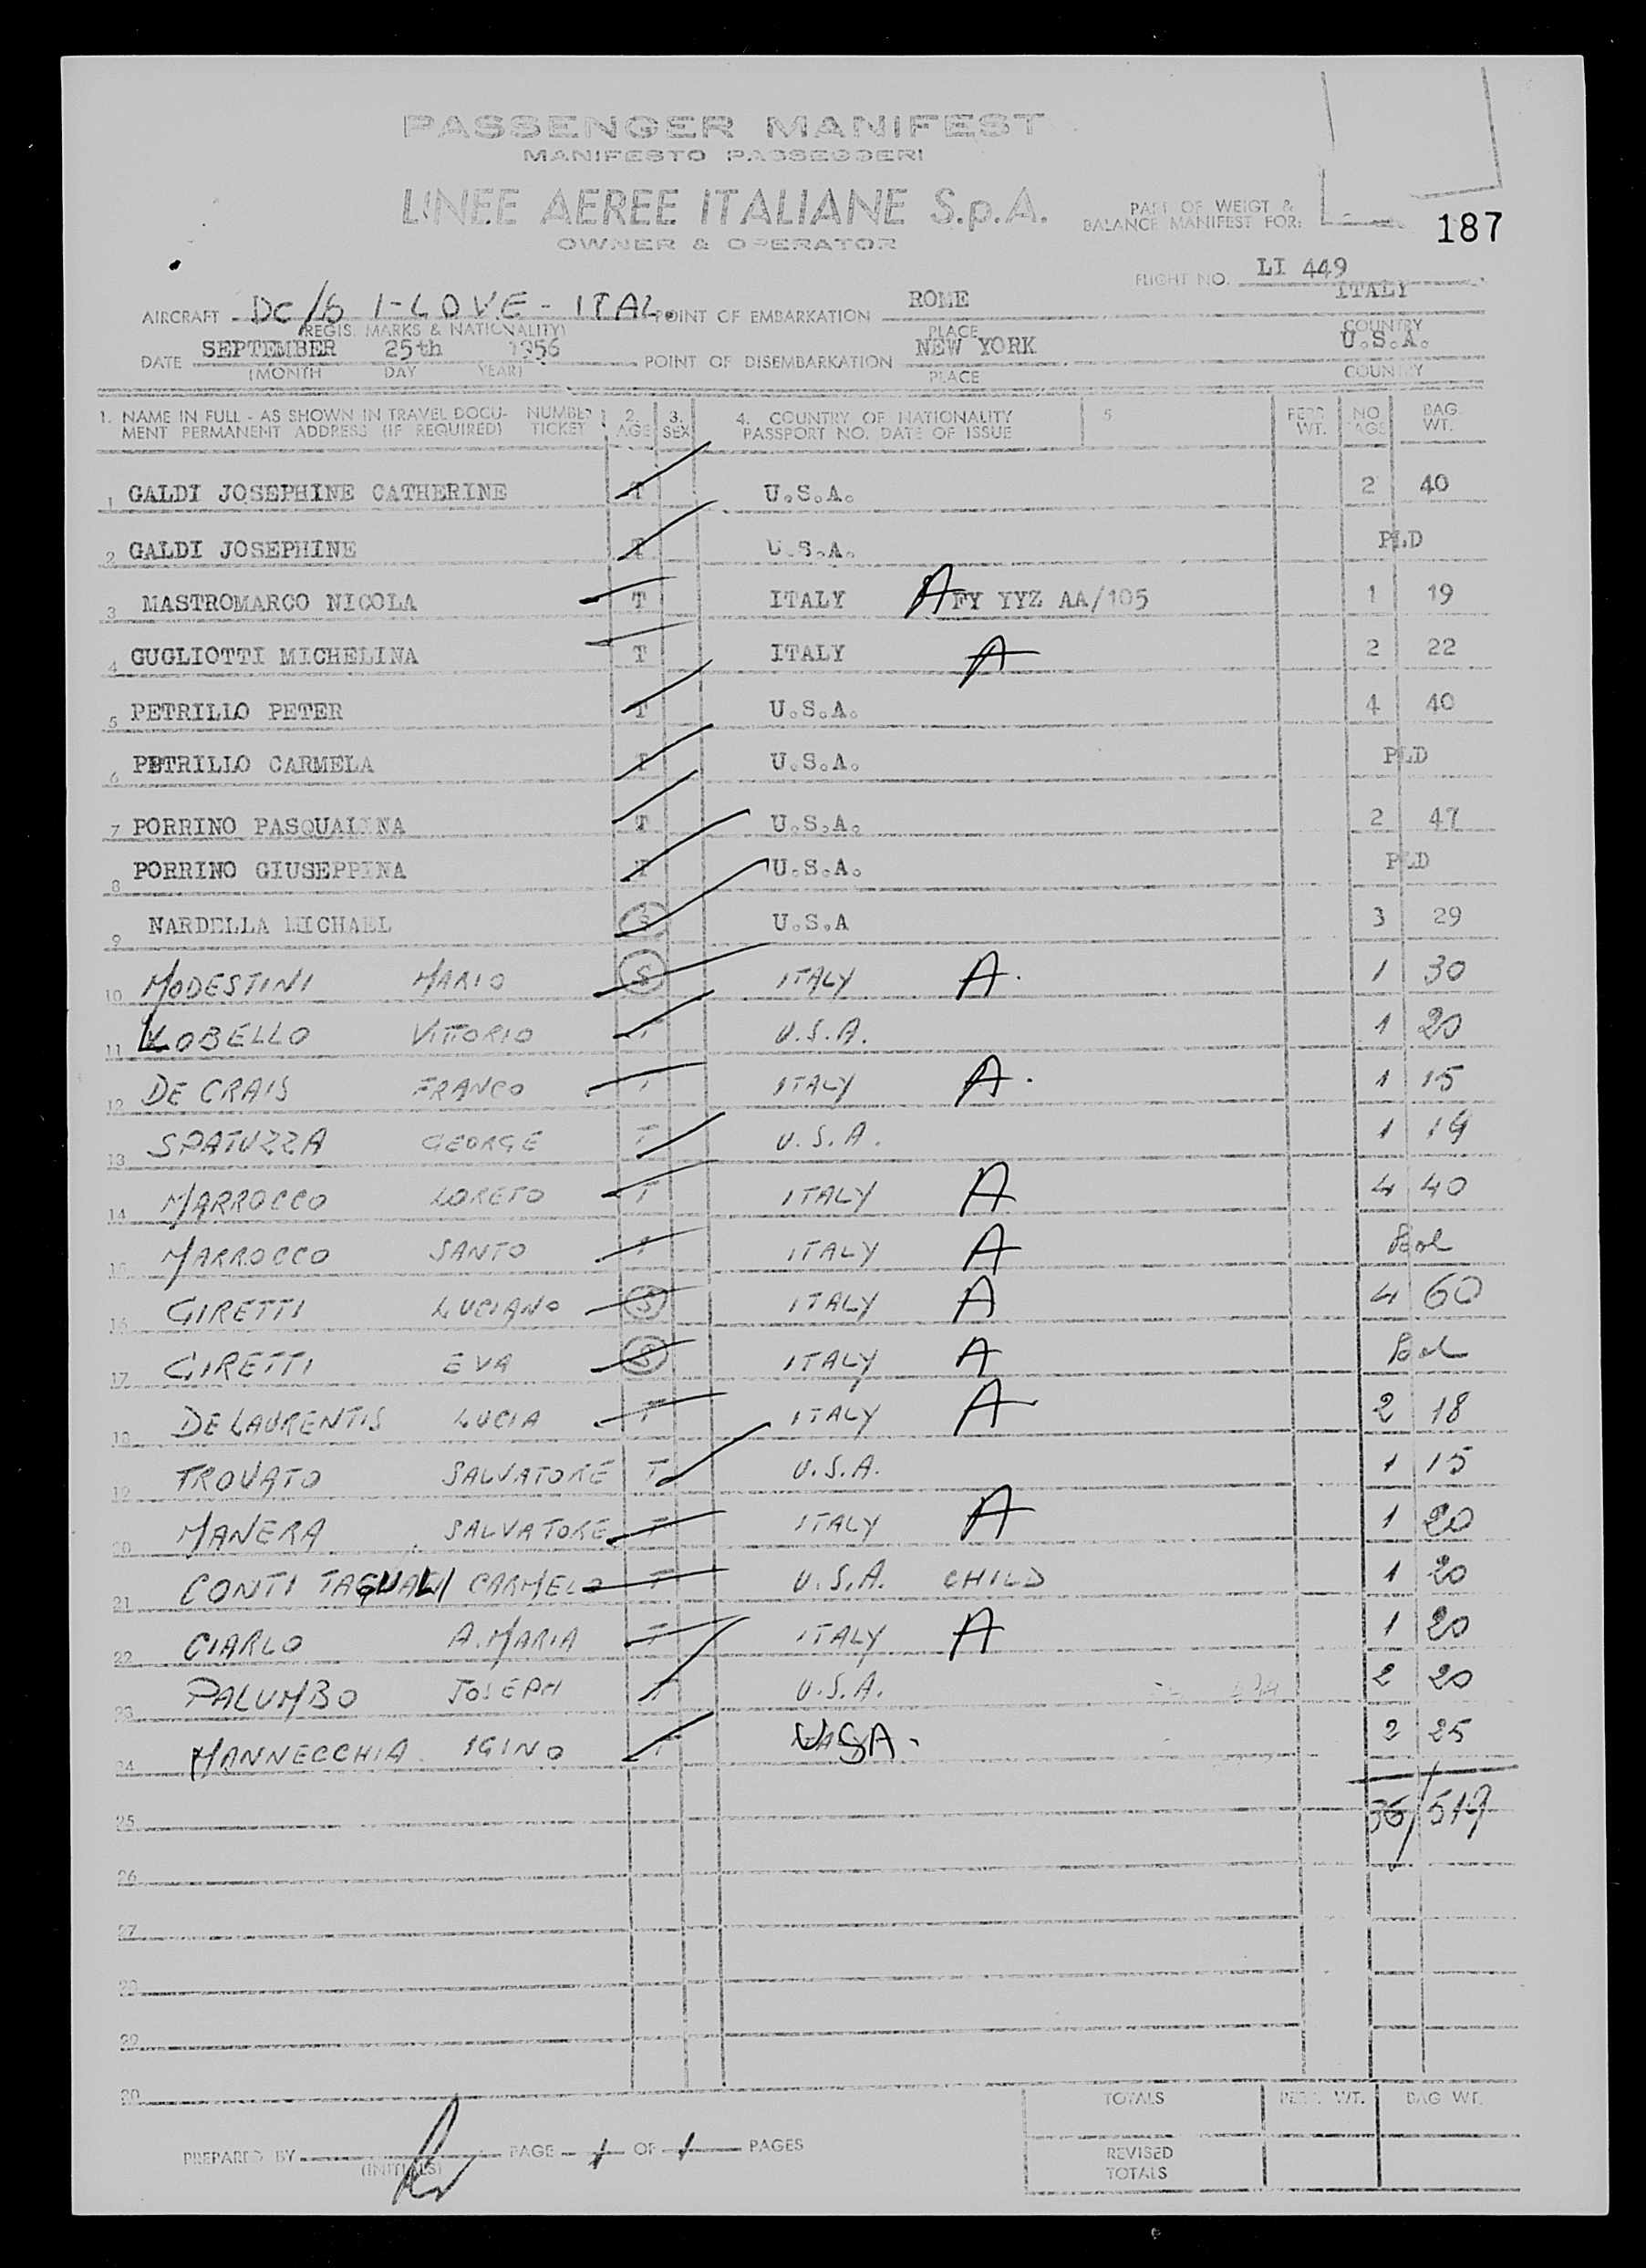 PASSENGER MANIFEST
MANIFESTO PASSEGGERI
LINEE AEREE ITALIANE S.p.A.
OWNER & OPERATOR
PART OF WEIGT &
BALANCE MANIFEST FOR:
187
FLIGHT NO. LI 449
AIRCRAFT DC/6 I-LOVE - ITAL. POINT OF EMBARKATION ROME ITALY
(REGIS. MARKS & NATIONALITY) PLACE COUNTRY
DATE SEPTEMBER 25th 1956 POINT OF DISEMBARKATION NEW YORK U.S.A.
(MONTH DAY YEAR) PLACE COUNTRY
1. NAME IN FULL - AS SHOWN IN TRAVEL DOCU- NUMBER 2. 3. 4. COUNTRY OF NATIONALITY 5 PERS NO BAG
MENT PERMANENT ADDRESS (IF REQUIRED) TICKET AGE SEX PASSPORT NO. DATE OF ISSUE WT. AGS WT.
1 GALDI JOSEPHINE CATHERINE T U.S.A. 2 40
2 GALDI JOSEPHINE T U.S.A. PLD
3 MASTROMARCO NICOLA T ITALY A FY YYZ AA/105 1 19
4 GUGLIOTTI MICHELINA T ITALY A 2 22
5 PETRILLO PETER T U.S.A. 4 40
6 PETRILLO CARMELA T U.S.A. PLD
7 PORRINO PASQUALINA T U.S.A. 2 47
8 PORRINO GIUSEPPINA T U.S.A. PLD
9 NARDELLA MICHAEL S U.S.A 3 29
10 MODESTINI MARIO S ITALY A. 1 30
11 LOBELLO VITTORIO T U.S.A. 1 20
12 DE CRAIS FRANCO T ITALY A. 1 15
13 SPATUZZA GEORGE T U.S.A. 1 19
14 MARROCCO LORETO T ITALY A 4 40
15 MARROCCO SANTO T ITALY A
16 GIRETTI LUCIANO S ITALY A 4 60
17 GIRETTI EVA S ITALY A
18 DE LAURENTIS LUCIA T ITALY A 2 18
19 TROVATO SALVATORE T U.S.A. 1 15
20 MANERA SALVATORE T ITALY A 1 20
21 CONTI TAGUALI CARMELO T U.S.A. CHILD 1 20
22 CIARLO A. MARIA T ITALY A 1 20
23 PALUMBO JOSEPH T U.S.A. 2 20
24 MANNECCHIA IGINO T USA. 2 25
25 36/519
26
27
28
29
30
TOTALS PERS. WT. BAG WT.
PREPARED BY PAGE 1 OF 1 PAGES
(INITIALS)
REVISED
TOTALS